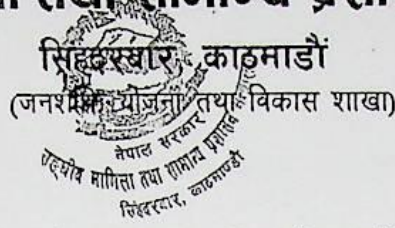 तथा सामान्य प्रशा
सिंहदरबार, काठमाडौं
(जनशक्ति योजना तथा विकास शाखा)
नेपाल सरकार
सङ्घीय मामिला तथा सामान्य प्रशासन
सिंहदरबार, काठमाण्डौ